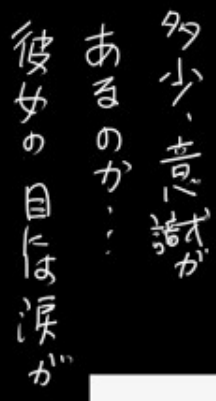 多少、意識が
あるのか・・・
彼女の目には涙が